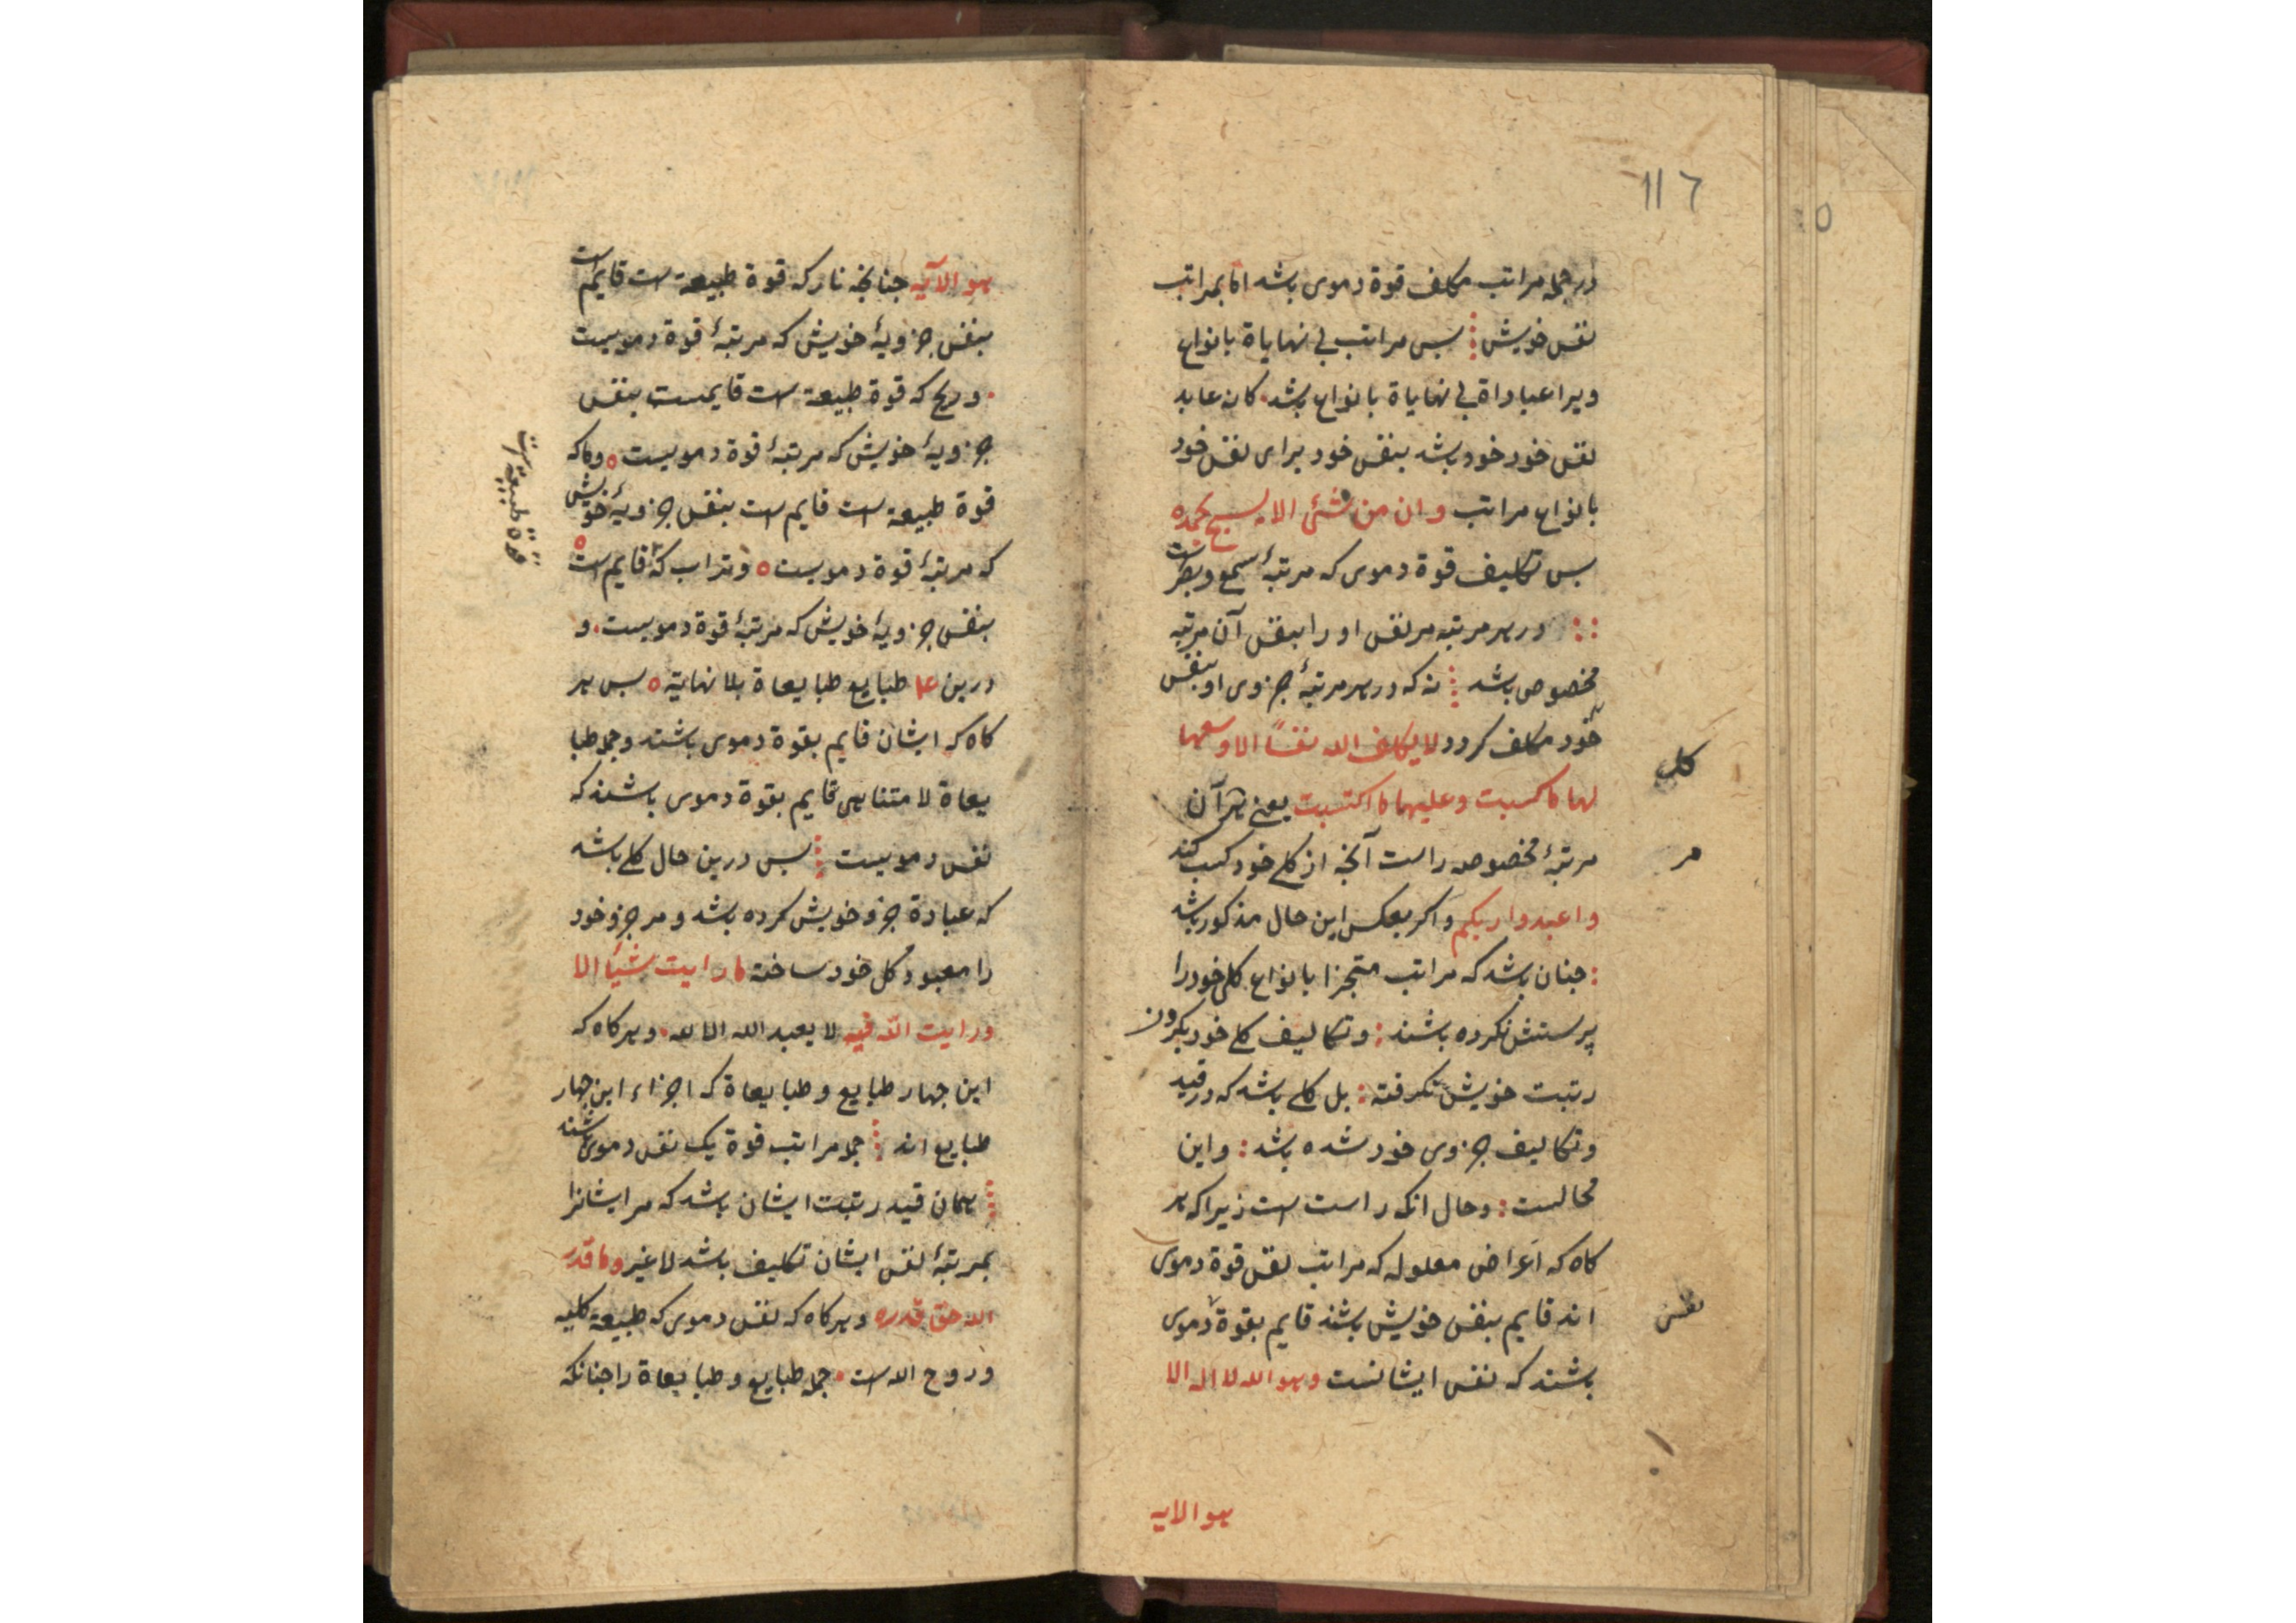 116
در جمله مراتب مکلف قوة دموی باشد اما بمراتب
نفس خویش ⁞ بس مراتب بی نهایاة بانواع
ویرا عباداة بی نهایاة بانواع باشد. کانه عابد
نفس خود خود باشد بنفس خود برای نفس خود
بانواع مراتب و ان من شئ الا یسبح بحمده
بس تکلیف قوة دموی که مرتبۀ سمع و بصر است
:: در هر مرتبه مر نفس او را بنفس آن مرتبه
مخصوص باشد ⁞ نه که در هر مرتبۀ جزوی او بنفس
خود مکلف کردد لا یکلف الله نفساً الا وسعها
کلی
لها ما کسبت و علیها ما اکتسبت یعنی هر آن
مرتبۀ مخصوصه راست آنجه از کلی خود کسب کند
مر
واعبدوا ربکم و اکر بعکس این حال مذکور باشد
: جنان باشد که مراتب متجزا بانواع کلی خود را
پرستش نکرده باشند : و تکالیف کلی خود بکردن
رتبت خویش نکرفته : بل کلی باشد که در قید
و تکالیف جزوی خود شده باشد : و این
محالست : و حال انکه راست است زیرا که هر
کاه که اعراض معلوله که مراتب نفس قوة دموی
اند قایم بنفس خویش باشند قایم بقوة دموی
نفس
باشند که نفس ایشانست و هو الله لا اله الا
هو الایه
هو الآیه جنانجه نار که قوة طبیعة است قایم است
بنفس جزویۀ خویش که مرتبۀ قوة دمویست
. و ریح که قوة طبیعة است قایمست بنفس
جزویۀ خویش که مرتبۀ قوة دمویست ه و ما که
قوة طبیعة است قایم است بنفس جزویۀ خویش
که مرتبۀ قوة دمویست ه و تراب که قایم است ه
قوة طبیعة است
بنفس جزویۀ خویش که مرتبۀ قوة دمویست . و
درین ۴ طبایع طبایعاة بلا نهایة ه بس هر
کاه که ایشان قایم بقوة دموی باشند و جمله طبا
یعاة لا متناهی قایم بقوة دموی باشند که
نفس دمویست ⁞ بس درین حال کلی باشد
که عبادة جزو خویش کرده باشد و مر جزو خود
را معبود کل خود ساخته ما رایت شیأ الا
و رایت الله فیه لا یعبد الله الا لله . و هر کاه که
این جهار طبایع و طبایعاة که اجزاء این جهار
طبایع اند ⁞ جمله مراتب قوة یک نفس دموی باشند
⁞ همان قید رتبت ایشان باشد که مر ایشانرا
بمرتبۀ نفس ایشان تکلیف باشد لا غیر و ما قدر
الله حق قدره و هر کاه که نفس دموی که طبیعة کلیه
و روح اله است . جمله طبایع و طبایعاة را جنانکه